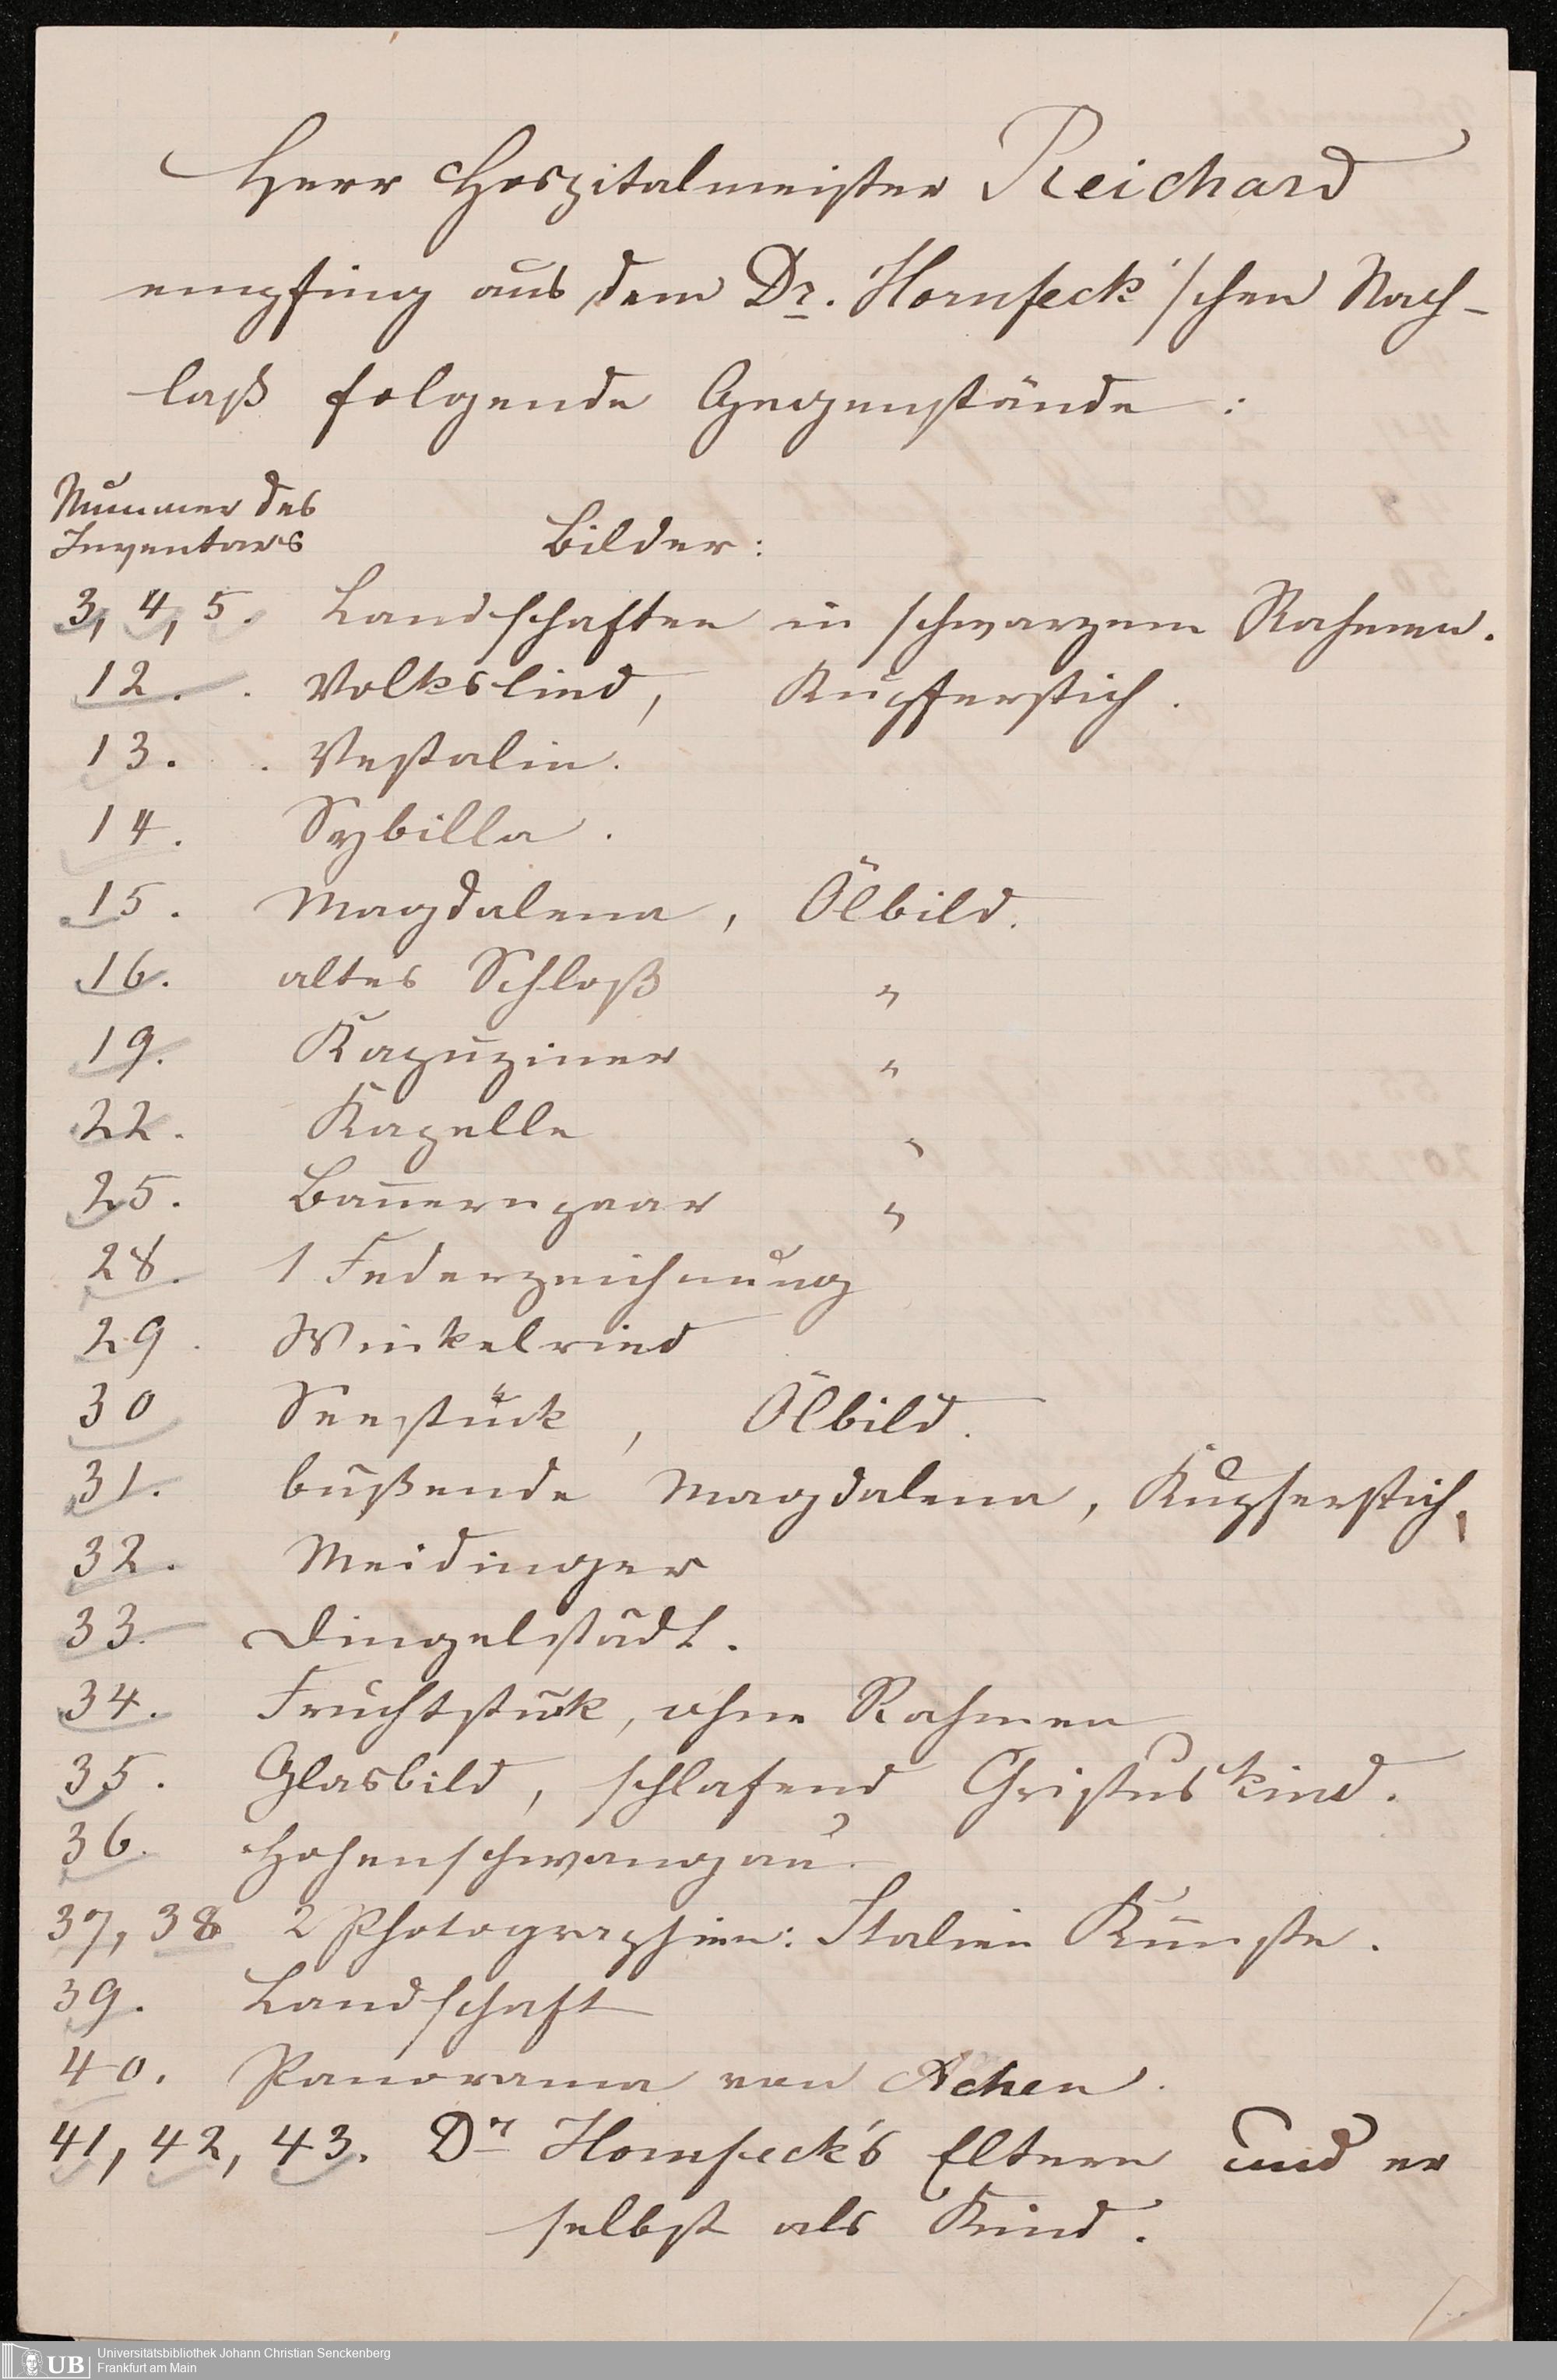 Herr Hospitalmeister Reichard
empfing aus dem Dr. Hornfeck'schen Nach-
laß folgende Gegenstände:
Nummer des
Inventars
Bilder:
3, 4, 5. Landschaften in schwarzem Rahmen.
12. Volkslied, Kupferstich.
13. Vestalin.
14. Sybilla.
15. Magdalena, Ölbild.
16. altes Schloß "
19. Kapuziner "
22. Kapelle "
25. Bauernpaar "
28. 1 Federzeichnung
29. Winkelried
30 Seestück, Ölbild.
31. büßende Magdalena, Kupferstich.
32. Meidinger
33. Dingelstädt.
34. Fruchtstück, ohne Rahmen
35. Glasbild, schlafend Christuskind.
36. Hohenschwangau.
37, 38 2 Photographien: Italien Künste.
39. Landschaft
40. Panorama von Achen.
41, 42, 43. Dr Hornfeck's Eltern und er
selbst als Kind.
UB
Universitätsbibliothek Johann Christian Senckenberg
Frankfurt am Main